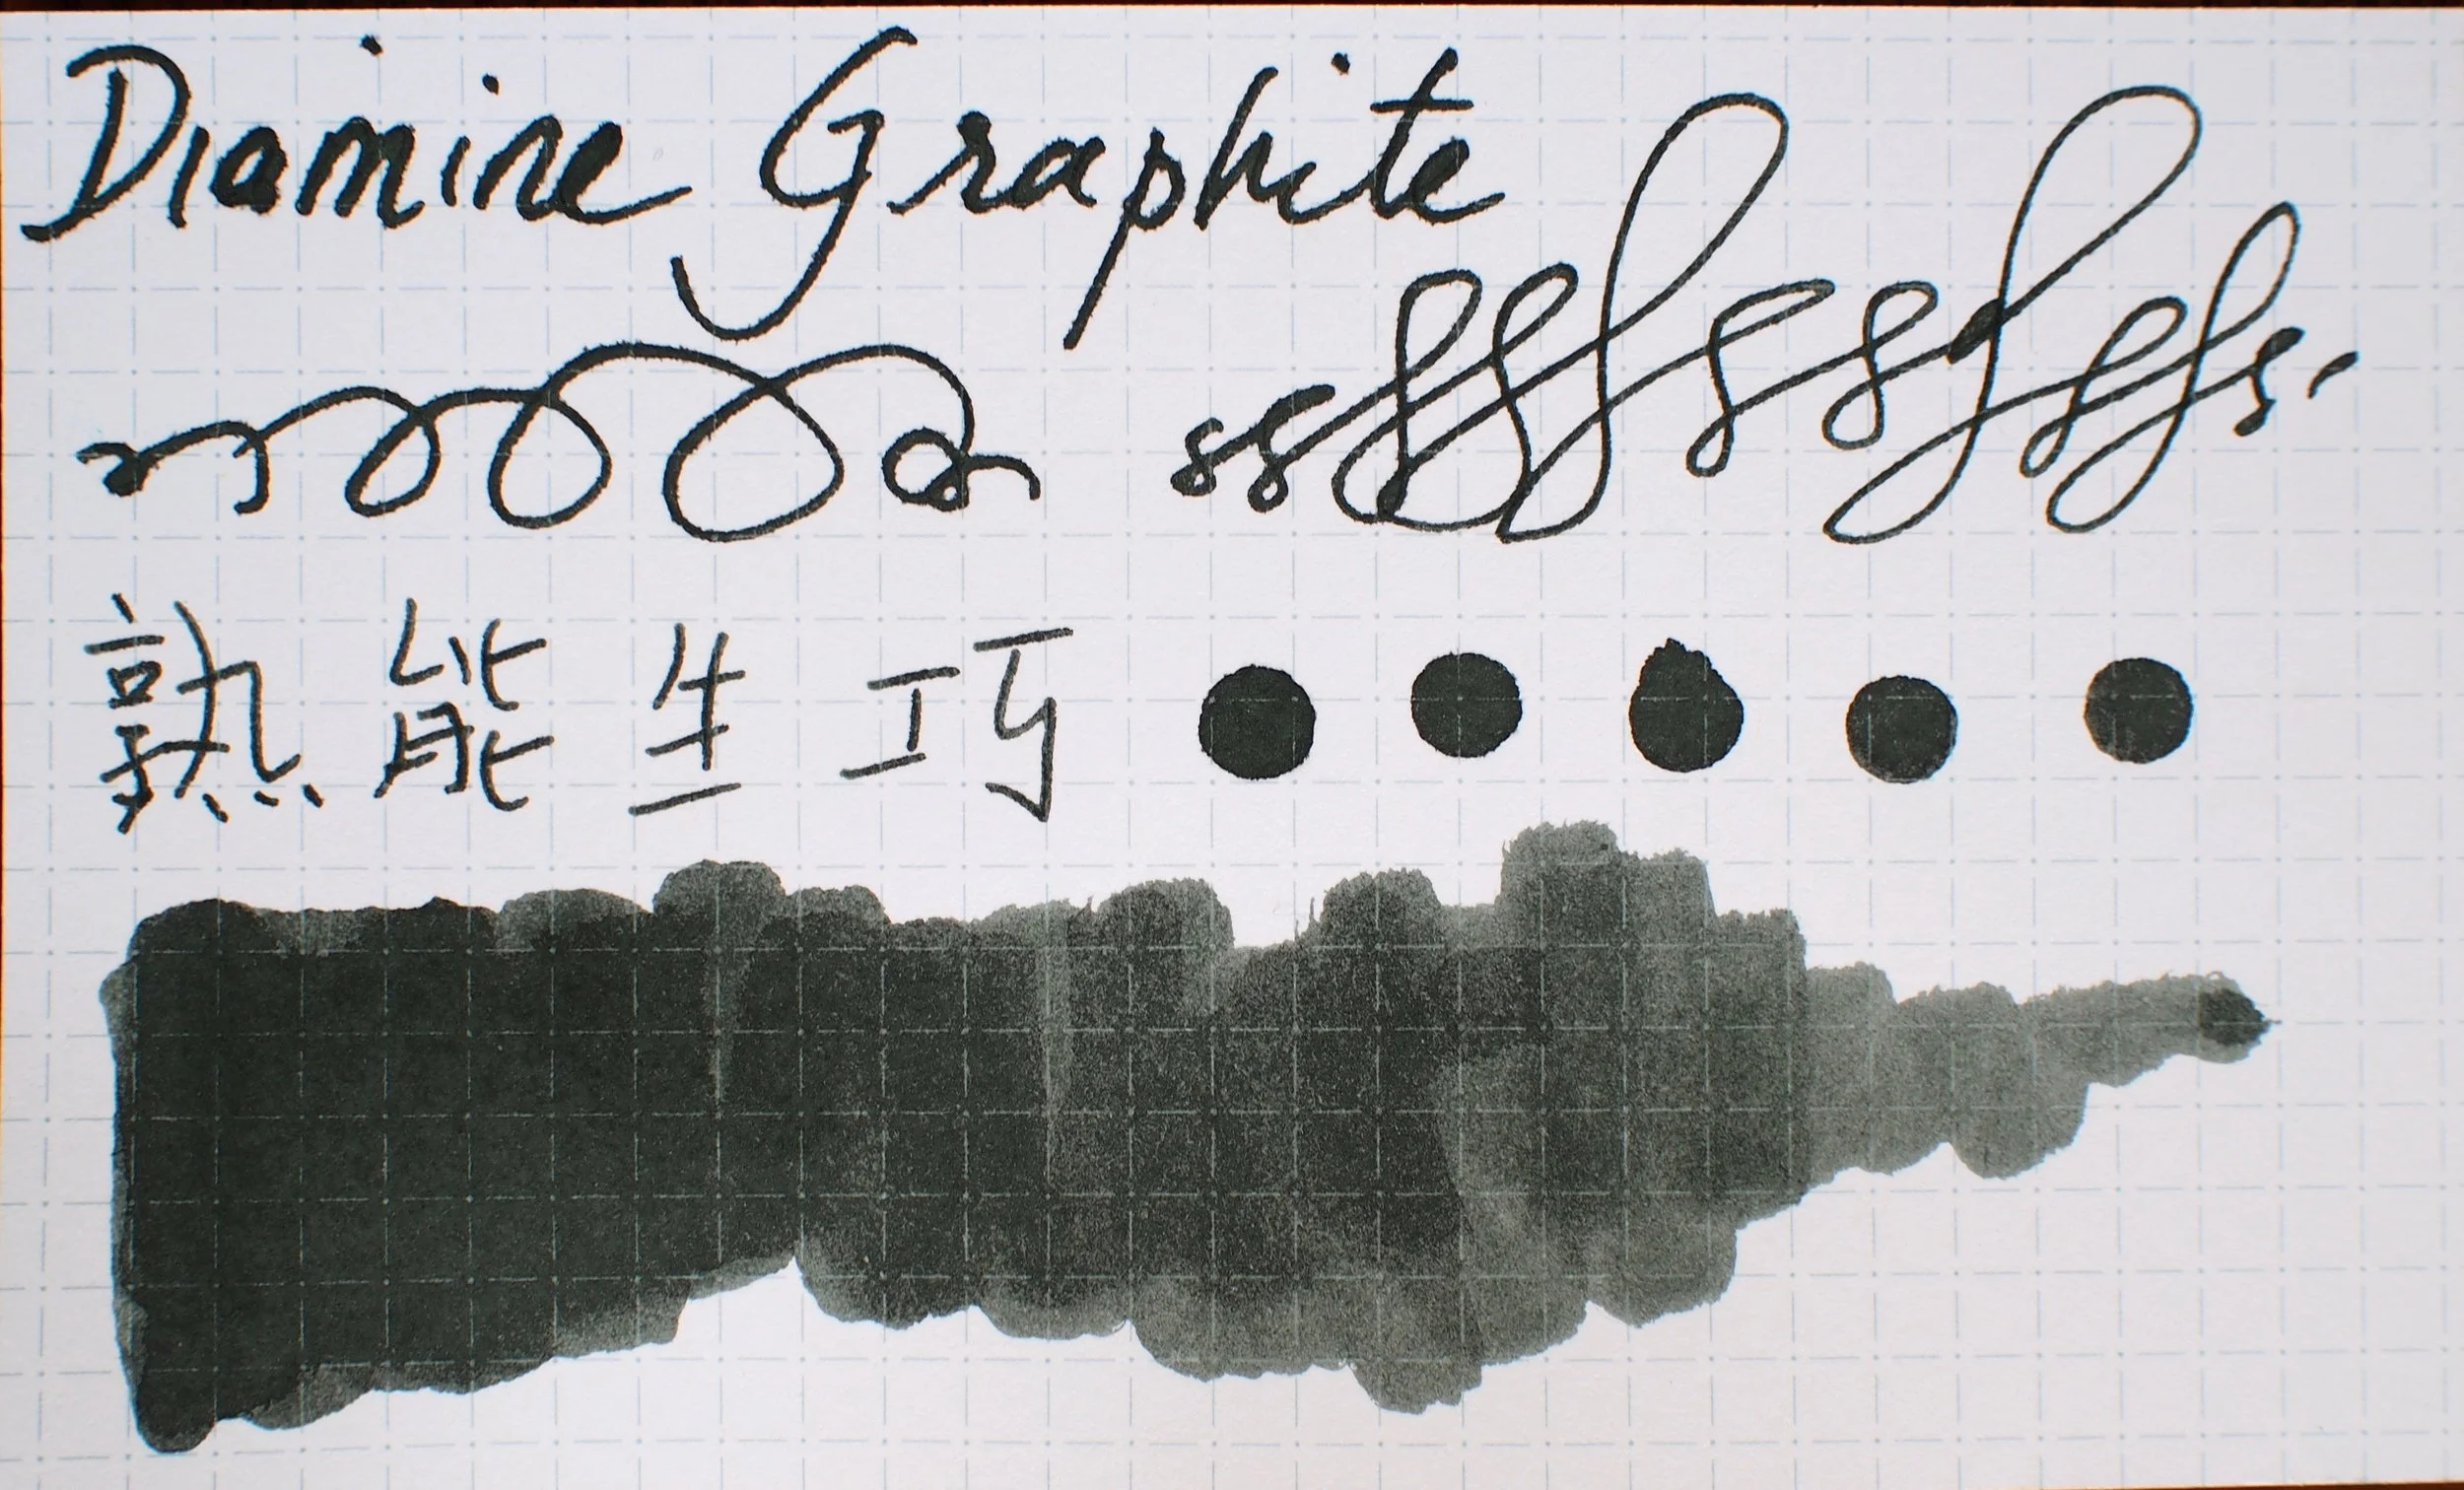 Diamine Graphite
熟能生巧